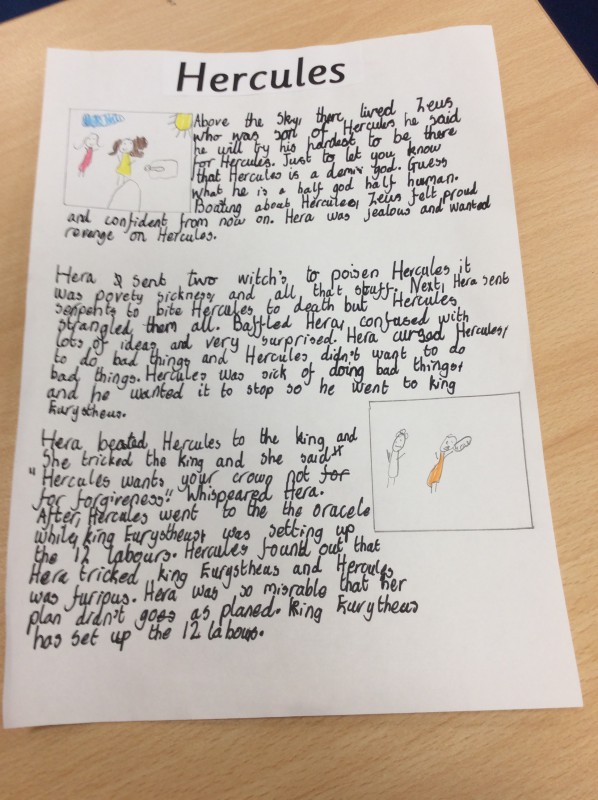 Hercules
Above the sky, there, lived Zeus
who was son of Hercules he said
he will try his hardest to be there
for Hercules. Just to let you know
that Hercules is a demix god. Guess
what he is a half god half human.
Boating about Hercules, Zeus felt proud
and confident from now on. Hera was jealous and wanted
revenge on Hercules.
Hera sent two witch's to poisen Hercules it
was povety sickness, and all that stuff. Next, Hera sent
serpents to bite Hercules to death but Hercules
strangled them all. Baffled Hera, confused with
lots of ideas, and very surprised. Hera cursed Hercules,
to do bad things and Hercules, didn't want to do
bad things. Hercules was sick of doing bad things,
and he wanted it to stop so he went to king
Eurystheus.
Hera beated Hercules to the king and
She tricked the king and she said,"
"Hercules wants your crown not for
for forgireness". Whispeared Hera.
After, Hercules went to the the oracele
while, king Eurystheus, was setting up
the 12 labours. Hercules found out that
Hera tricked king Eurystheus and Hercules
was furious. Hera was so misrable that her
plan didn't goes as planed. King Eurytheus
has set up the 12 labous.